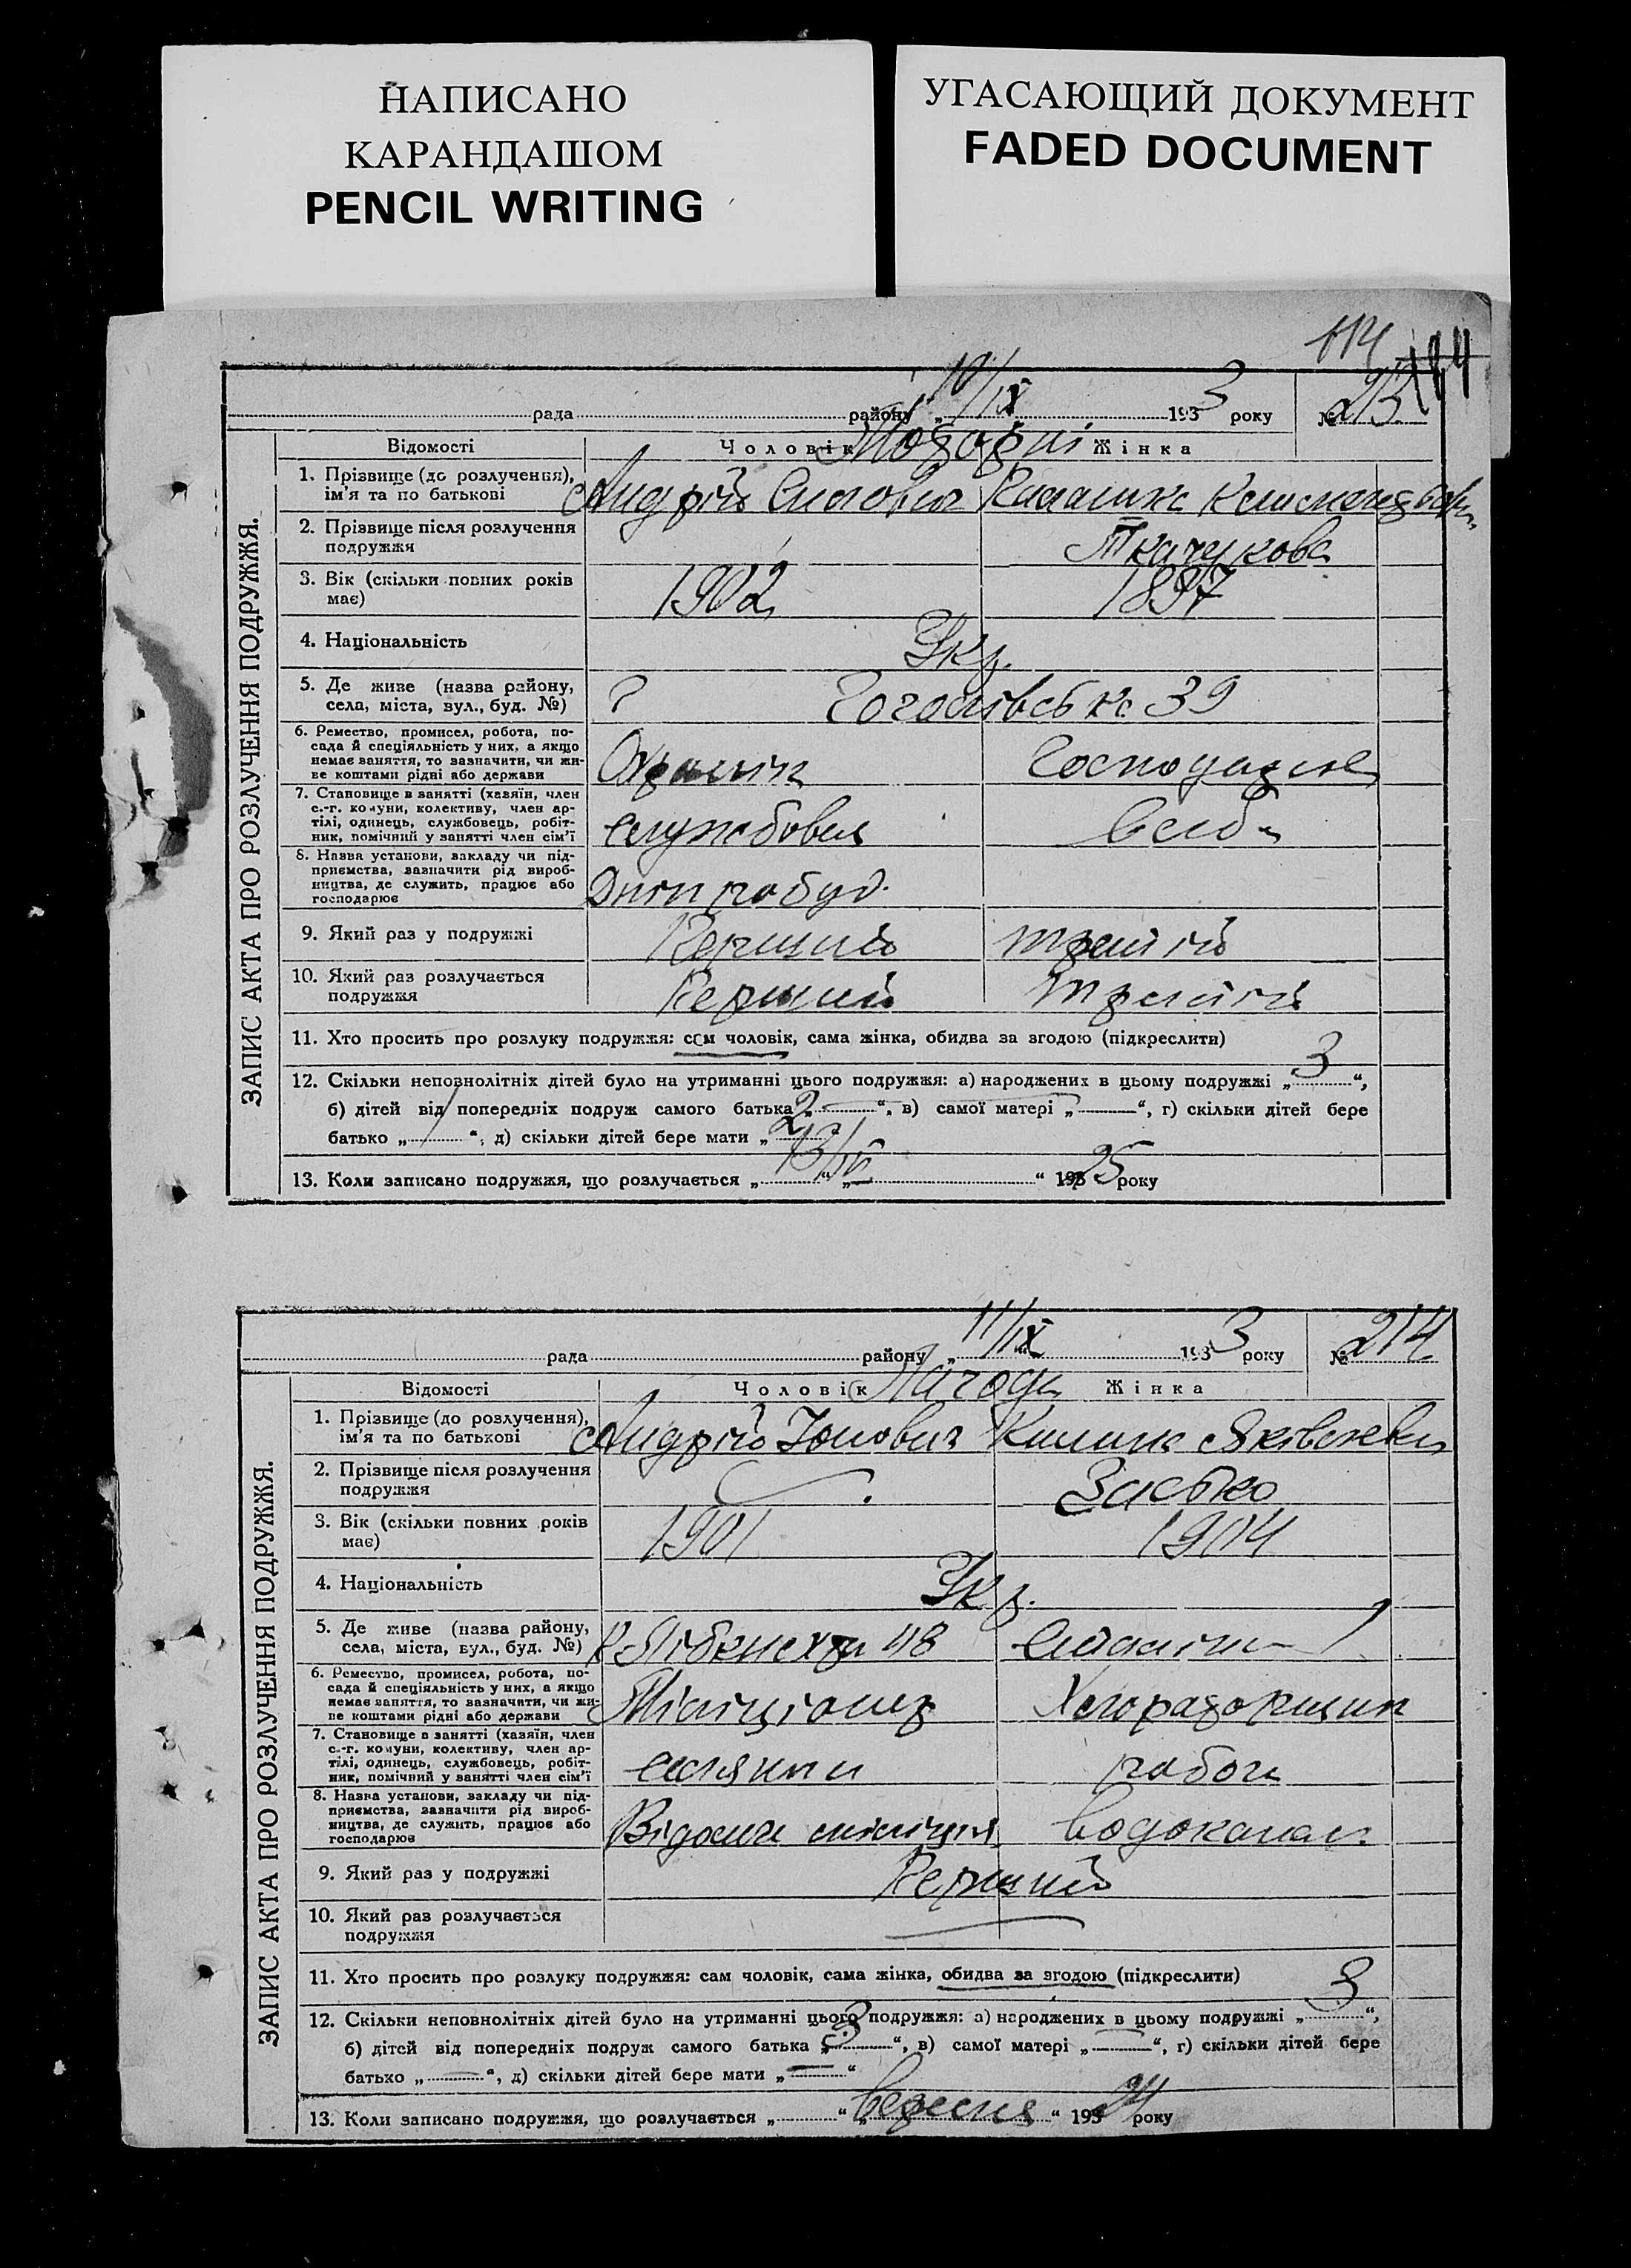 НАПИСАНО
КАРАНДАШОМ
PENCIL WRITING
УГАСАЮЩИЙ ДОКУМЕНТ
FADED DOCUMENT
114
ЗАПИС АКТА ПРО РОЗЛУЧЕННЯ ПОДРУЖЖЯ.
рада району „ 10/IX 1933 року № 213
Відомості Чоловік Жінка
1. Прізвище (до розлучення), ім'я та по батькові Андрій
2. Прізвище після розлучення подружжя Ткачукова
3. Вік (скільки повних років має) 1902 1897
4. Національність Укр.
5. Де живе (назва району, села, міста, вул., буд. №) ? Гоголівська 39
6. Ремество, промисел, робота, по-
сада й спеціяльність у них, а якщо
немає заняття, то зазначити, чи жи-
ве коштами рідні або держави
7. Становище в занятті (хазяїн, член
с.-г. комуни, колективу, член ар-
тілі, одинець, службовець, робіт-
ник, помічний у занятті член сім'ї службовец
8. Назва установи, закладу чи під-
приємства, зазначити рід вироб-
ництва, де служить, працює або
господарює Дніпробуд.
9. Який раз у подружжі Перший третій
10. Який раз розлучається подружжя Перший третій
11. Хто просить про розлуку подружжя: сам чоловік, сама жінка, обидва за згодою (підкреслити)
12. Скільки неповнолітніх дітей було на утриманні цього подружжя: а) народжених в цьому подружжі „ 3 “,
б) дітей від попередніх подруж самого батька „ — “, в) самої матері „ — “, г) скільки дітей бере
батько „ 1 “, д) скільки дітей бере мати „ 2 “
13. Коли записано подружжя, що розлучається „ “ „ “ 1925 року
ЗАПИС АКТА ПРО РОЗЛУЧЕННЯ ПОДРУЖЖЯ.
рада району „ 11/IX 1933 року № 214
Відомості Чоловік Жінка
1. Прізвище (до розлучення), ім'я та по батькові Андрій Йонович Яківлевна
2. Прізвище після розлучення подружжя
3. Вік (скільки повних років має) 1901 1904
4. Національність Укр.
5. Де живе (назва району, села, міста, вул., буд. №) К. Лібкнехта 48 Сталіна 1
6. Ремество, промисел, робота, по-
сада й спеціяльність у них, а якщо
немає заняття, то зазначити, чи жи-
ве коштами рідні або держави Міліціонер
7. Становище в занятті (хазяїн, член
с.-г. комуни, колективу, член ар-
тілі, одинець, службовець, робіт-
ник, помічний у занятті член сім'ї
8. Назва установи, закладу чи під-
приємства, зазначити рід вироб-
ництва, де служить, працює або
господарює міліція Водоканал
9. Який раз у подружжі Перший
10. Який раз розлучається подружжя
11. Хто просить про розлуку подружжя: сам чоловік, сама жінка, обидва за згодою (підкреслити)
12. Скільки неповнолітніх дітей було на утриманні цього подружжя: а) народжених в цьому подружжі „ 3 “,
б) дітей від попередніх подруж самого батька „ “, в) самої матері „ — “, г) скільки дітей бере
батько „ — “, д) скільки дітей бере мати „ — “
13. Коли записано подружжя, що розлучається „ “ „ вересня “ 1924 року